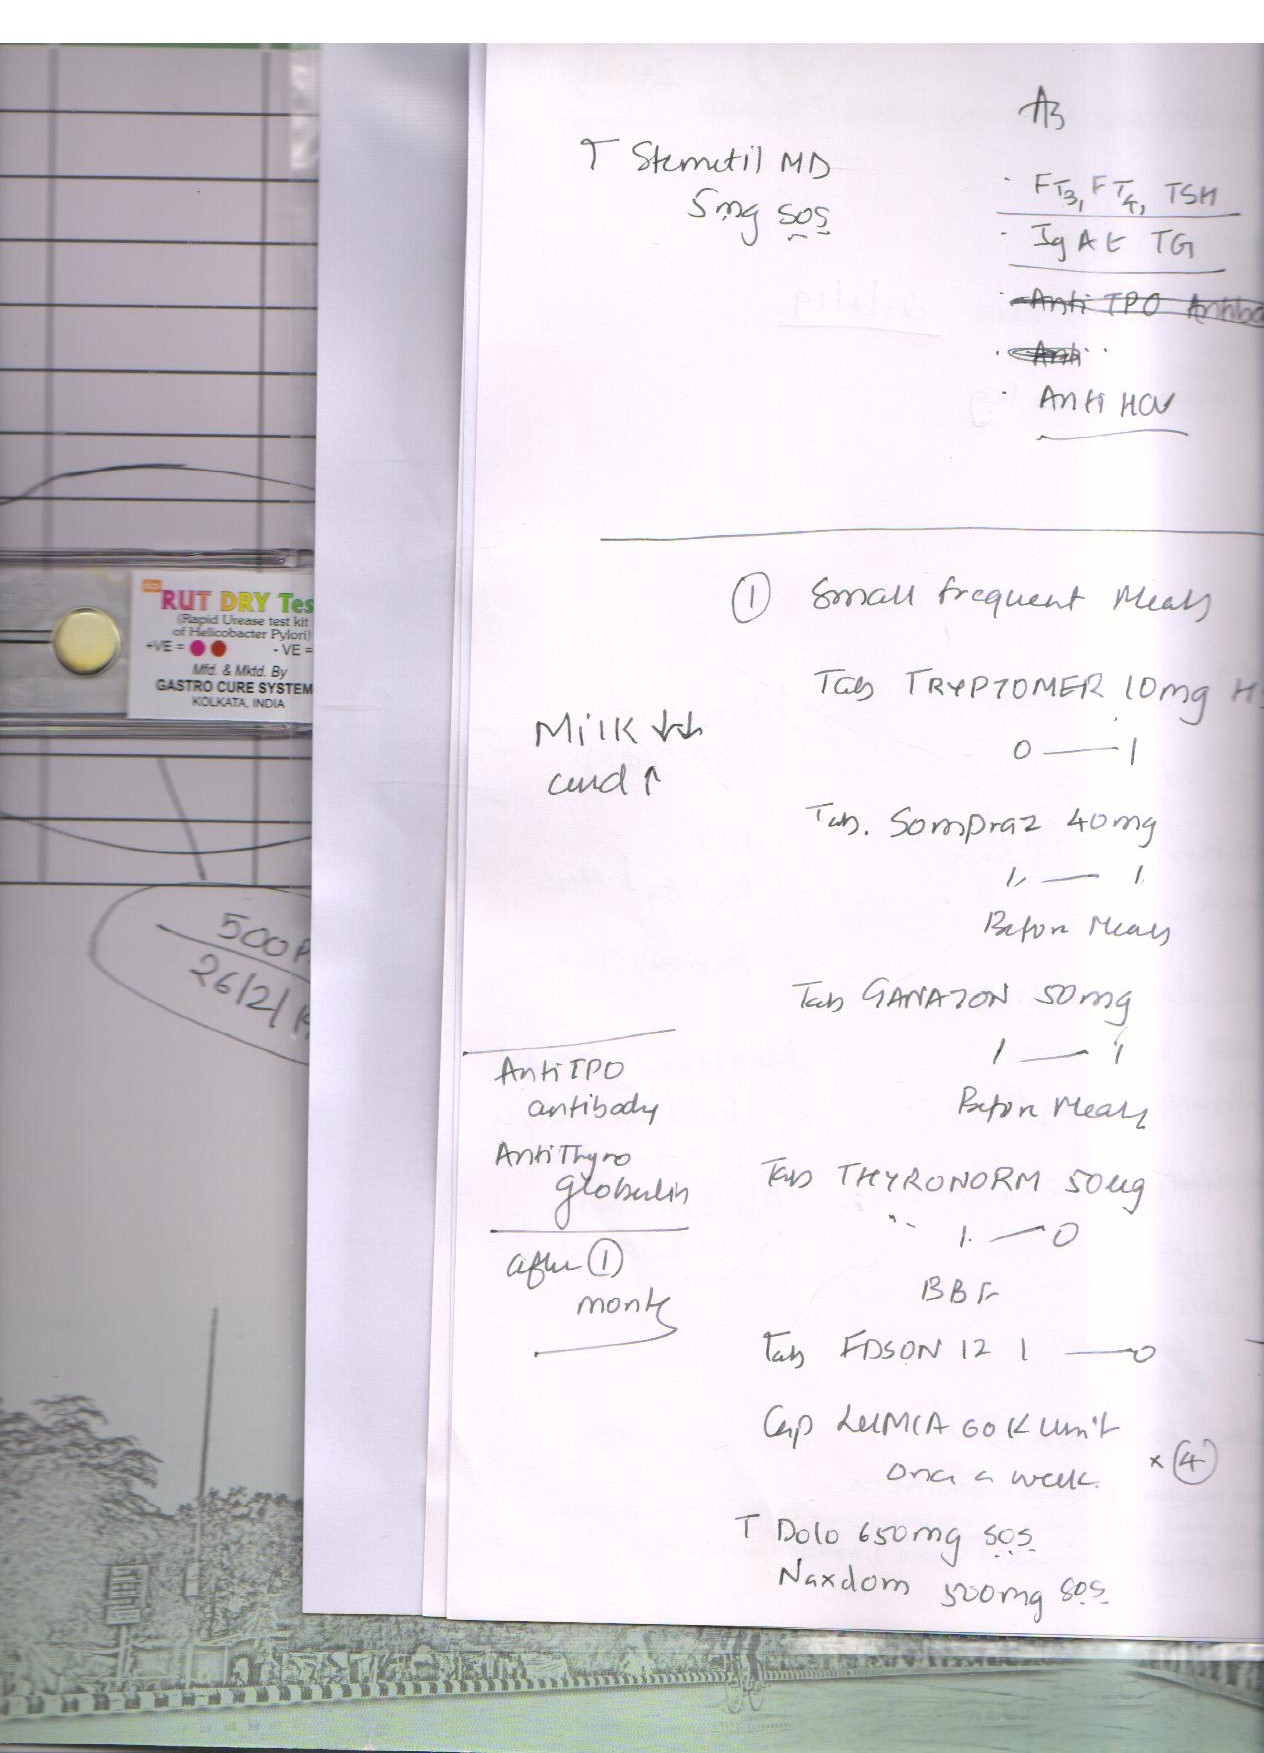 T Stemetil MD
5mg SOS
FT3, FT4, TSH
IgA tTG
Anti TPO Antibo
Anti
Anti HCV
① Small frequent Meals
Tab TRYPTOMER 10mg HS
0 — 1
Milk ↓↓
curd ↑
Tab. Sompraz 40mg
1 — 1
Before Meals
Tab GANATON 50mg
1 — 1
Before Meals
Anti TPO
antibody
Anti Thyro
globulin
after ①
month
Tab THYRONORM 50ug
1 — 0
BBF
Tab EDSON 12 1 — 0
Cap LUMIA 60K unit
once a week. × ④
T Dolo 650mg SOS
Naxdom 500mg SOS
RUT DRY Tes
(Rapid Urease test kit
of Helicobacter Pylori)
+VE = - VE =
Mfd. & Mktd. By
GASTRO CURE SYSTEM
KOLKATA, INDIA
500
26/2/1